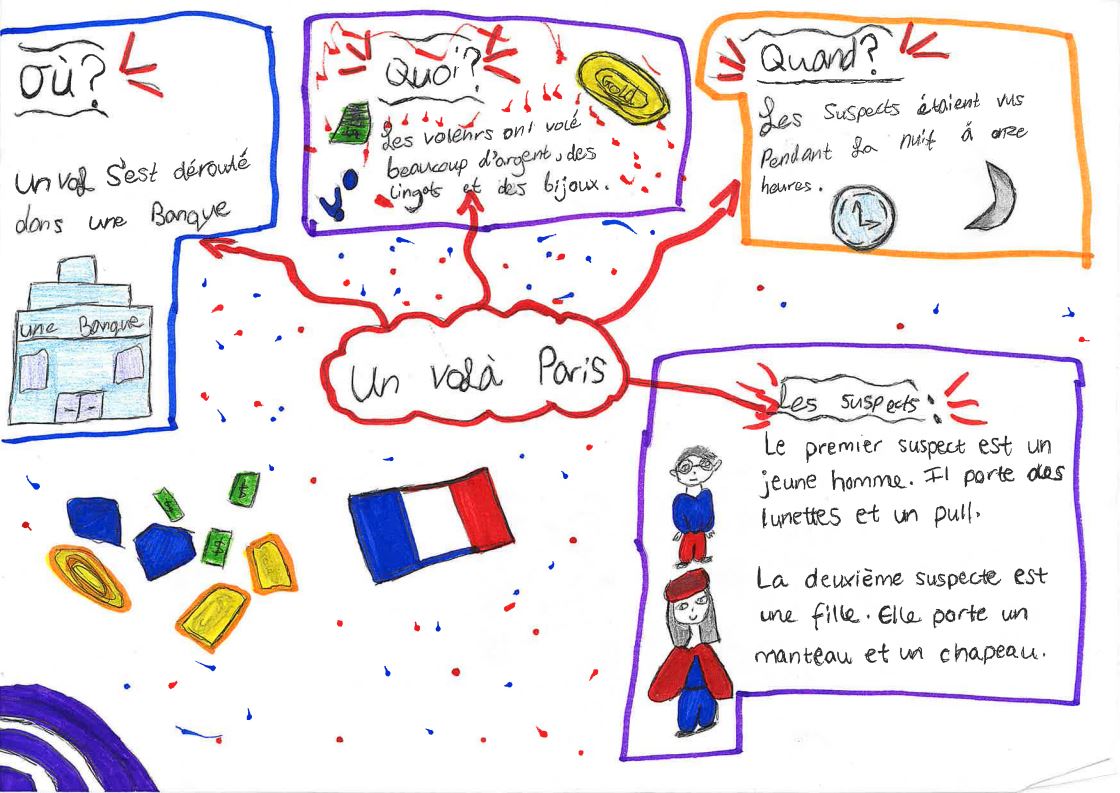 Où?
Un vol S'est dérouté
dans une Banque
une Banque
Quoi?
Gold
Les volehrs ont volé
beaucoup d'argent, des
lingots et des bijoux.
Quand?
Les suspects étaient vus
Pendant la nuit à onze
heures.
Un vol à Paris
Les suspects :
Le premier suspect est un
jeune homme. Il porte des
lunettes et un pull.
La deuxième suspecte est
une fille. Elle porte un
manteau et un chapeau.
$
$
$